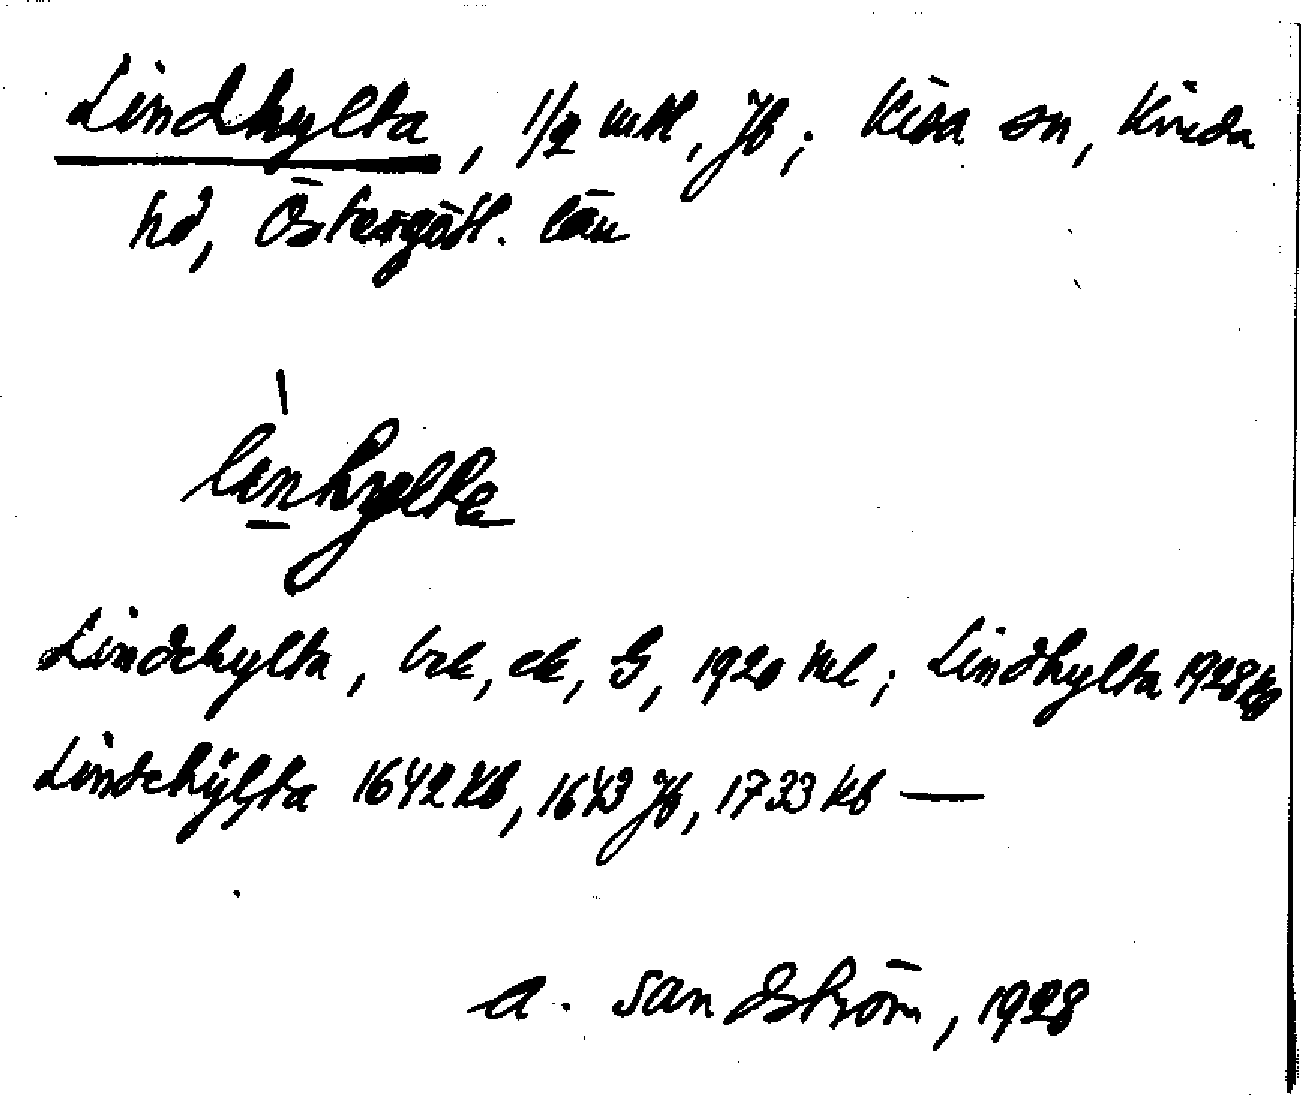 Lindhylta, 1/2 mtl, Jb; Kisa sn, Kinda
hd, Östergötl. län
Lindehylta, bek, ek, G, 1920 ml; Lindhylta 1928 Kb
Lindehylta 1642 Kb, 1643 Jb, 1733 Kb —
A. Sandström, 1928